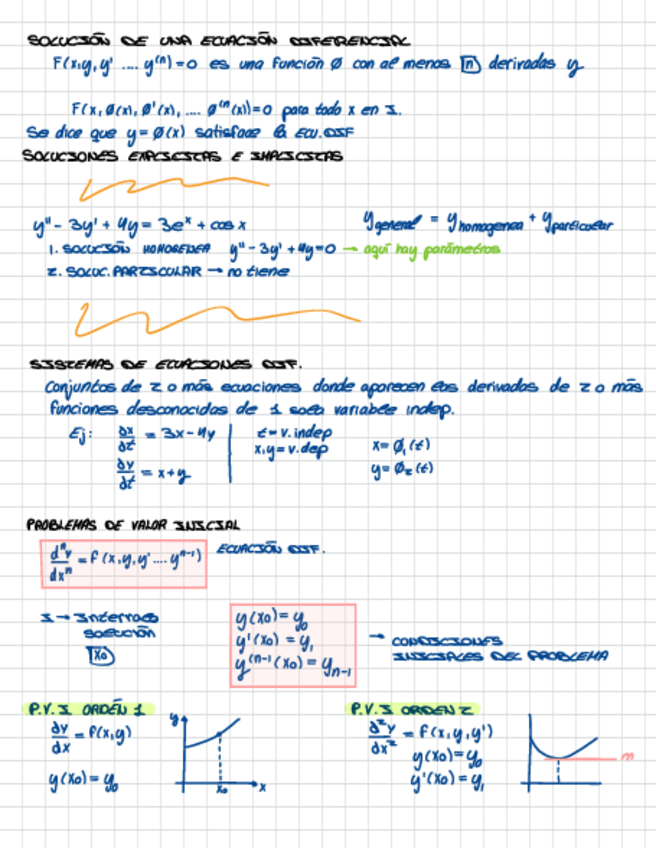 SOLUCIÓN DE UNA ECUACIÓN DIFERENCIAL
F(x,y,y' .... y⁽ⁿ⁾)=0 es una función Ø con al menos n derivadas y
F(x, Ø(x), Ø'(x), .... Ø⁽ⁿ⁾(x))=0 para todo x en I.
Se dice que y=Ø(x) satisface la ECU.DIF
SOLUCIONES EXPLICITAS E IMPLICITAS
y''- 3y' + 4y = 3eˣ + cos x
y general = y homogenea + y particular
1. SOLUCIÓN HOMOGENEA y''- 3y' + 4y=0 → aquí hay parámetros
2. SOLUC. PARTICULAR → no tiene
SISTEMAS DE ECUACIONES DIF.
Conjuntos de 2 o más ecuaciones donde aparecen las derivadas de 2 o más
funciones desconocidas de 1 sola variable indep.
Ej: dx/dt = 3x-4y
t = v. indep
x,y = v. dep
x = Ø₁(t)
dy/dt = x+y
y = Ø₂(t)
PROBLEMAS DE VALOR INICIAL
dⁿy/dxⁿ = f(x,y,y'....yⁿ⁻¹) ECUACIÓN DIF.
I → Intervalo
solución
x₀
y(x₀) = y₀
y'(x₀) = y₁
y⁽ⁿ⁻¹⁾(x₀) = yₙ₋₁
→ CONDICIONES
INICIALES DEL PROBLEMA
P.V.I ORDEN 1
dy/dx = f(x,y)
y(x₀) = y₀
y
x₀
x
P.V.I ORDEN 2
d²y/dx² = f(x,y,y')
y(x₀) = y₀
y'(x₀) = y₁
m